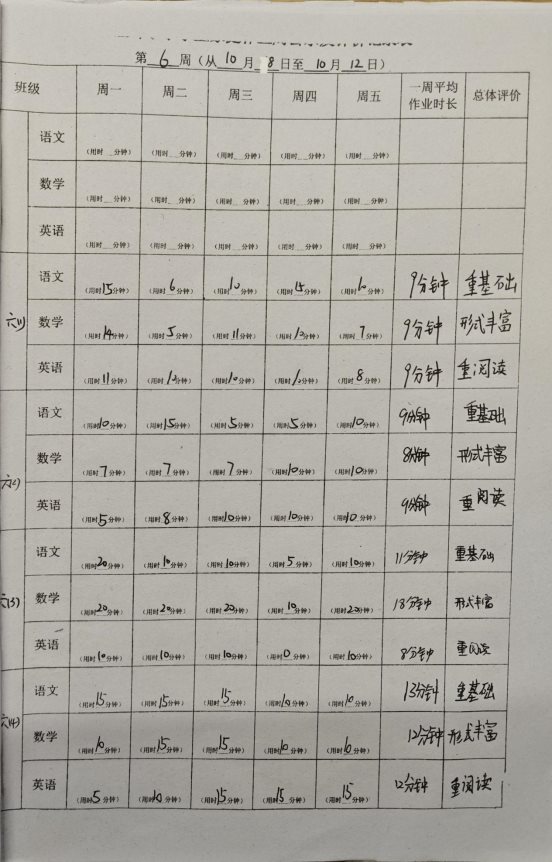 第 6 周（从 10 月 8 日至 10 月 12 日）
班级 周一 周二 周三 周四 周五 一周平均作业时长 总体评价
语文 （用时__分钟） （用时__分钟） （用时__分钟） （用时__分钟） （用时__分钟）
数学 （用时__分钟） （用时__分钟） （用时__分钟） （用时__分钟） （用时__分钟）
英语 （用时__分钟） （用时__分钟） （用时__分钟） （用时__分钟） （用时__分钟）
六(1) 语文 （用时15分钟） （用时6分钟） （用时10分钟） （用时分钟） （用时10分钟） 9分钟 重基础
数学 （用时14分钟） （用时5分钟） （用时11分钟） （用时10分钟） （用时7分钟） 9分钟 形式丰富
英语 （用时11分钟） （用时10分钟） （用时10分钟） （用时10分钟） （用时8分钟） 9分钟 重阅读
六(2) 语文 （用时10分钟） （用时15分钟） （用时5分钟） （用时5分钟） （用时10分钟） 9分钟 重基础
数学 （用时7分钟） （用时7分钟） （用时7分钟） （用时10分钟） （用时10分钟） 8分钟 形式丰富
英语 （用时5分钟） （用时8分钟） （用时10分钟） （用时10分钟） （用时10分钟） 9分钟 重阅读
六(3) 语文 （用时20分钟） （用时10分钟） （用时10分钟） （用时5分钟） （用时10分钟） 11分钟 重基础
数学 （用时20分钟） （用时20分钟） （用时20分钟） （用时10分钟） （用时20分钟） 18分钟 形式丰富
英语 （用时10分钟） （用时10分钟） （用时10分钟） （用时0分钟） （用时10分钟） 8分钟 重阅读
六(4) 语文 （用时15分钟） （用时15分钟） （用时15分钟） （用时10分钟） （用时10分钟） 13分钟 重基础
数学 （用时10分钟） （用时15分钟） （用时15分钟） （用时10分钟） （用时10分钟） 12分钟 形式丰富
英语 （用时5分钟） （用时10分钟） （用时15分钟） （用时15分钟） （用时15分钟） 12分钟 重阅读